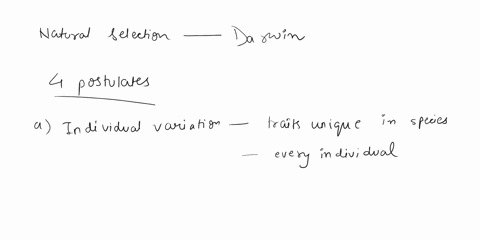 Natural selection — Darwin
4 postulates
a) Individual variation — traits unique in species
— every individual